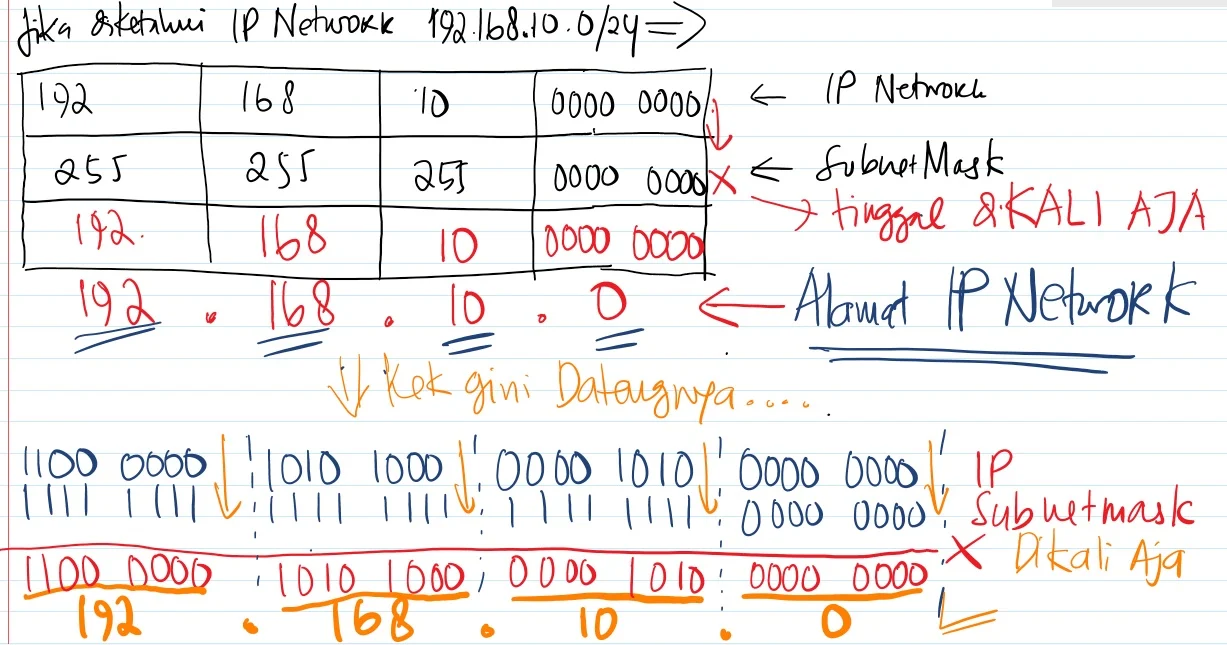 Jika diketahui IP Network 192.168.10.0/24 =>
192 168 10 0000 0000 ← IP Network
255 255 255 0000 0000 × ← SubnetMask
→ tinggal di.KALI AJA
192. 168 10 0000 0000
192 . 168 . 10 . 0 ← Alamat IP Network
↓ Kek gini Datangnya.....
1100 0000 1010 1000 0000 1010 0000 0000 IP
1111 1111 1111 1111 1111 1111 0000 0000 Subnetmask
× Dikali Aja
1100 0000 1010 1000 0000 1010 0000 0000
192 . 168 . 10 . 0